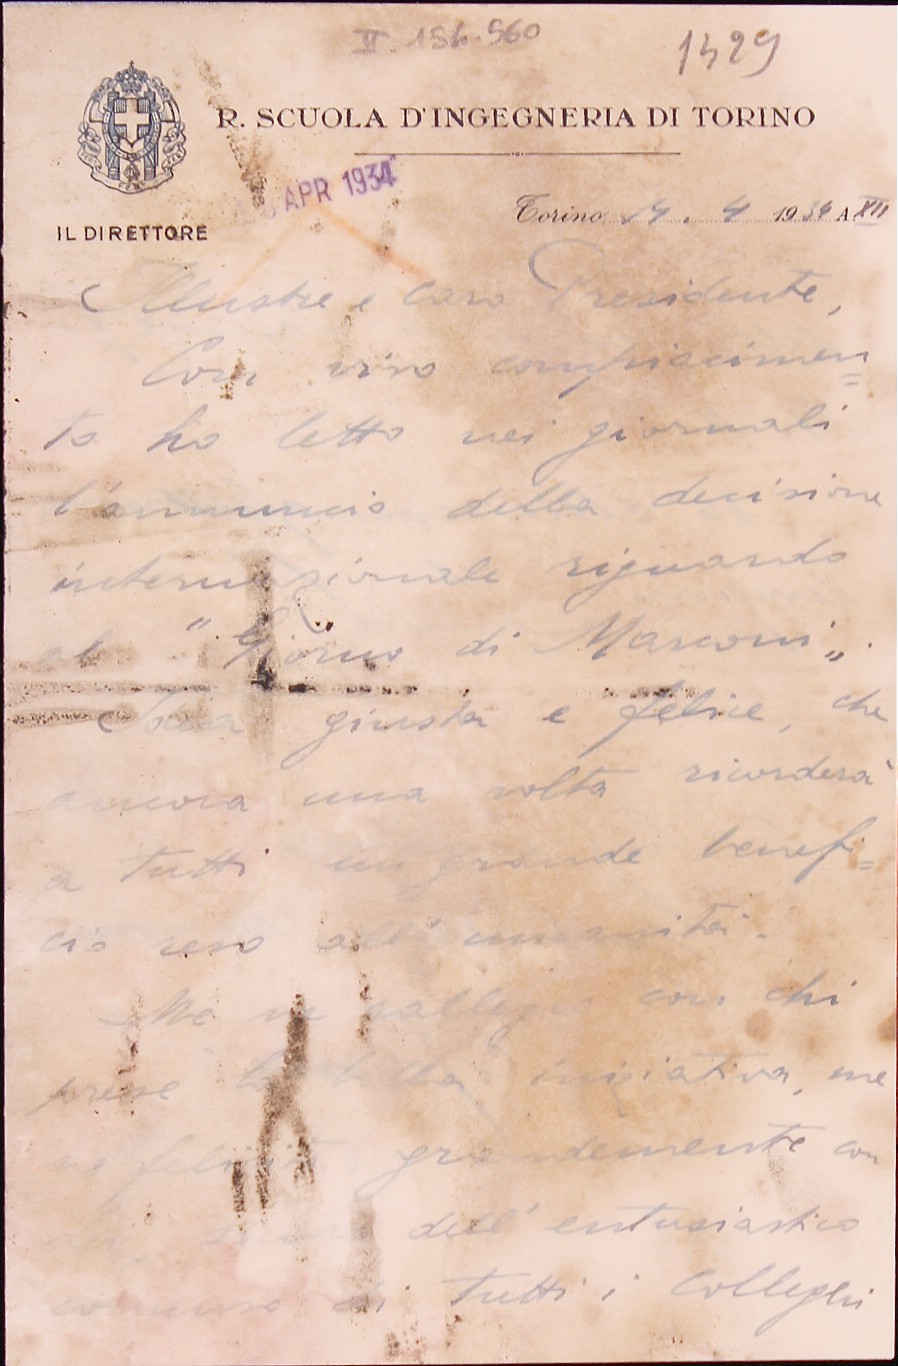 V. 156.560
1429
R. SCUOLA D'INGEGNERIA DI TORINO
APR 1934
Torino, 14. 4 1934 A XII
IL DIRETTORE
Illustre e caro Presidente,
Con vivo compiacimen=
to ho letto nei giornali
l'annuncio della decisione
internazionale riguardo
al "Giorno di Marconi„.
Idea giusta e felice, che
ancora una volta ricorderà
a tutti un grande benefi=
cio reso all'umanità.
Me ne rallegro con chi
prese la bella iniziativa, me
ne felicito grandemente con
dell'entusiastico
consenso di tutti i Colleghi